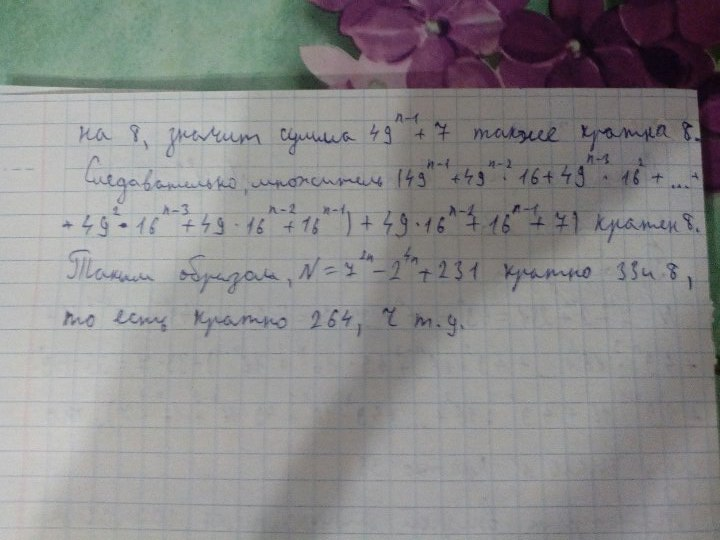 на 8, значит сумма 49^{n-1} + 7 также кратна 8.
Следавательно, множитель (49^{n-1} + 49^{n-2} · 16 + 49^{n-3} · 16^2 + ... +
+ 49^2 · 16^{n-3} + 49 · 16^{n-2} + 16^{n-1}) + 49 · 16^{n-2} + 16^{n-1} + 7) кратен 8.
Таким образом, N = 7^{2n} - 2^{4n} + 231 кратно 33 и 8,
то есть кратно 264, ч т.д.